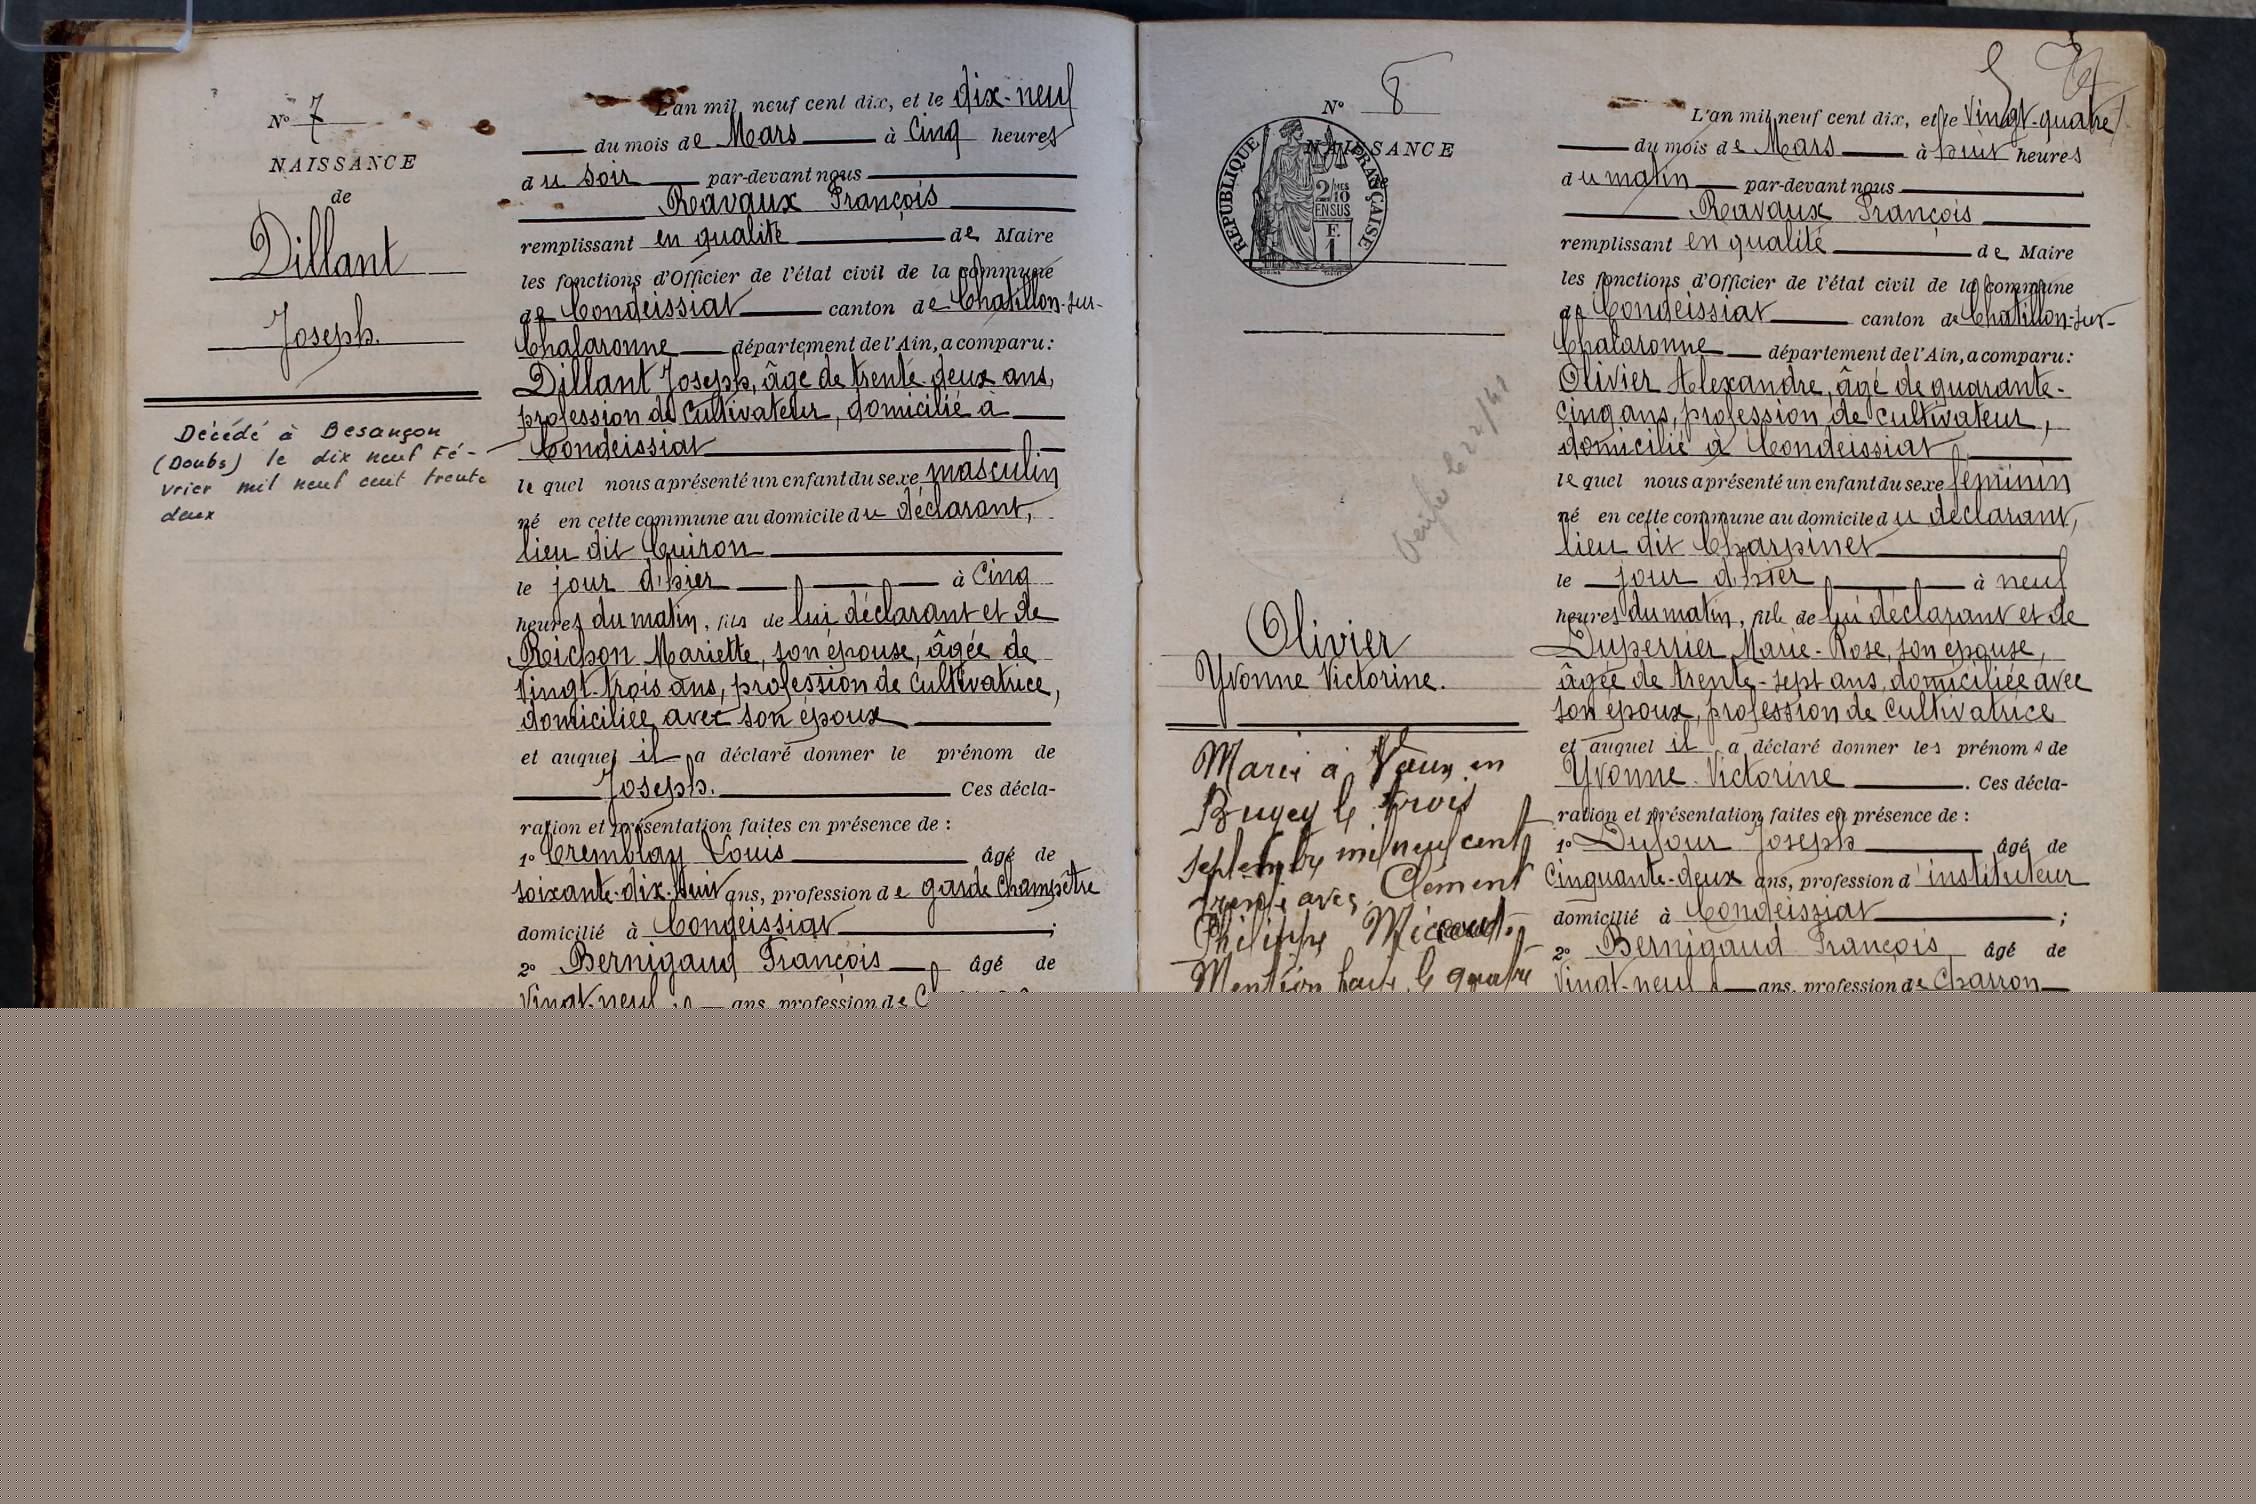 N° 7
NAISSANCE
de
Dillant
Joseph.
Décédé à Besançon
(Doubs) le dix neuf Fé-
vrier mil neuf cent trente
deux
L'an mil neuf cent dix, et le dix-neuf
du mois de Mars à Cinq heures
du soir par-devant nous
Ravaux François
remplissant en qualité de Maire
les fonctions d'Officier de l'état civil de la commune
de Condeissiat canton de Chatillon-sur-
Chalaronne département de l'Ain, a comparu:
Dillant Joseph, âgé de trente-deux ans,
profession de Cultivateur, domicilié à
Condeissiat
lequel nous a présenté un enfant du sexe masculin
né en cette commune au domicile du déclarant,
lieu dit Cuiron
le jour d'hier à Cinq
heures du matin, fils de lui déclarant et de
Richon Mariette, son épouse, âgée de
Vingt-trois ans, profession de Cultivatrice,
domiciliée avec son époux
et auquel il a déclaré donner le prénom de
Joseph. Ces décla-
ration et présentation faites en présence de :
1° Tremblay Louis âgé de
soixante-dix-huit ans, profession de garde Champêtre
domicilié à Condeissiat ;
2° Bernigaud François âgé de
Vingt-neuf ans, profession de
N° 8
NAISSANCE
RÉPUBLIQUE FRANÇAISE
2/10 MES
EN SUS
F.
1
Olivier
Yvonne Victorine.
Marié à Vaux en
Bugey le trois
septembre mil neuf cent
trente avec Clément
Philippe
Mention faite le quatre
L'an mil neuf cent dix, et le Vingt-quatre
du mois de Mars à huit heures
du matin par-devant nous
Ravaux François
remplissant en qualité de Maire
les fonctions d'Officier de l'état civil de la commune
de Condeissiat canton de Chatillon-sur-
Chalaronne département de l'Ain, a comparu:
Olivier Alexandre, âgé de quarante-
Cinq ans, profession de Cultivateur,
domicilié à Condeissiat
lequel nous a présenté un enfant du sexe féminin
né en cette commune au domicile du déclarant,
lieu dit Charpinet
le jour d'hier à neuf
heures du matin, fille de lui déclarant et de
Duperrier Marie-Rose, son épouse,
âgée de trente-sept ans, domiciliée avec
son époux, profession de Cultivatrice
et auquel il a déclaré donner les prénoms de
Yvonne Victorine. Ces décla-
ration et présentation faites en présence de :
1° Dufour Joseph âgé de
Cinquante-deux ans, profession d'instituteur
domicilié à Condeissiat ;
2° Bernigaud François âgé de
Vingt-neuf ans, profession de Charron